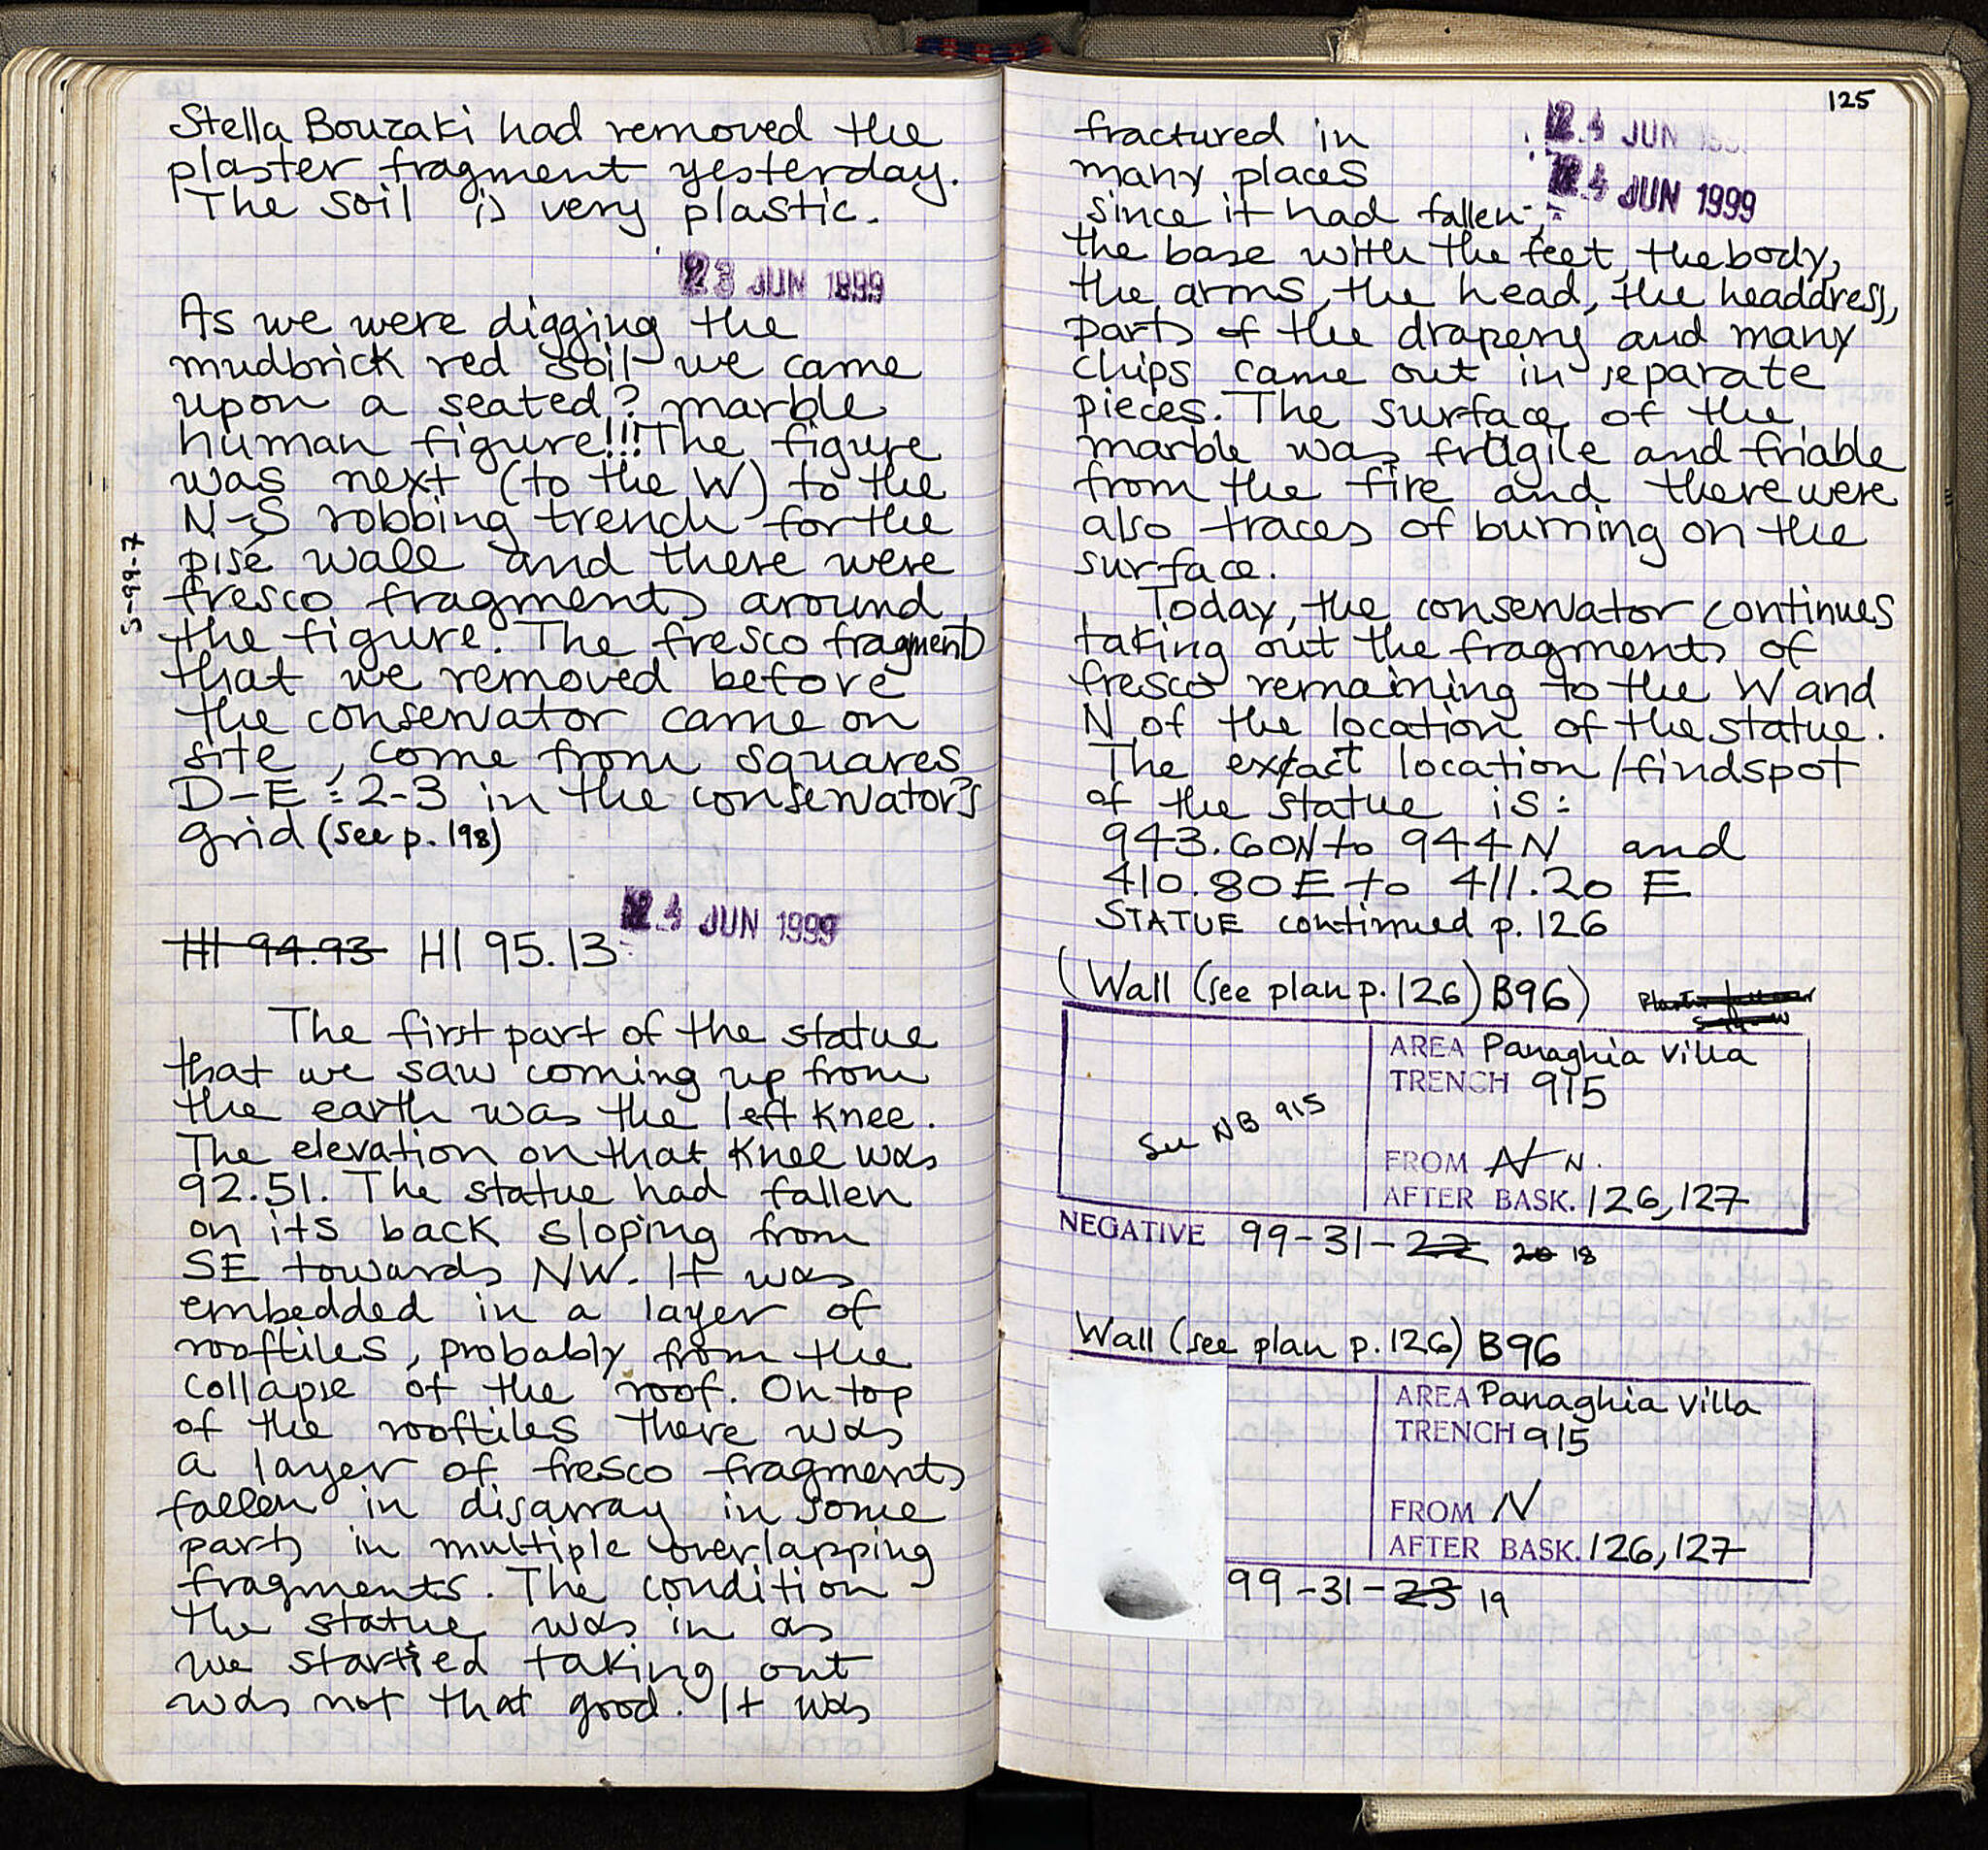 Stella Bouzaki had removed the
plaster fragment yesterday.
The soil is very plastic.
23 JUN 1999
As we were digging the
mudbrick red soil we came
upon a seated? marble
human figure!!! The figure
was next (to the W) to the
N-S robbing trench for the
pisé wall and there were
fresco fragments around
the figure. The fresco fragments
that we removed before
the conservator came on
site, come from squares
D-E : 2-3 in the conservator's
grid (see p. 198)
S-99-7
24 JUN 1999
HI 94.93 HI 95.13
The first part of the statue
that we saw coming up from
the earth was the left knee.
The elevation on that knee was
92.51. The statue had fallen
on its back sloping from
SE towards NW. It was
embedded in a layer of
rooftiles, probably from the
collapse of the roof. On top
of the rooftiles there was
a layer of fresco fragments
fallen in disarray in some
parts in multiple overlapping
fragments. The condition
the statue was in as
we started taking out
was not that good. It was
125
24 JUN
24 JUN 1999
fractured in
many places
since it had fallen;
the base with the feet, the body,
the arms, the head, the headdress,
parts of the drapery and many
chips came out in separate
pieces. The surface of the
marble was fragile and friable
from the fire and there were
also traces of burning on the
surface.
Today, the conservator continues
taking out the fragments of
fresco remaining to the W and
N of the location of the statue.
The exact location/findspot
of the statue is:
943.60N to 944N and
410.80E to 411.20 E
STATUE continued p. 126
(Wall (see plan p. 126) B96)
See NB 915
AREA Panaghia Villa
TRENCH 915
FROM N.
AFTER BASK. 126, 127
NEGATIVE 99-31-22 20 18
Wall (see plan p. 126) B96
AREA Panaghia Villa
TRENCH 915
FROM N
AFTER BASK. 126, 127
99-31-23 19